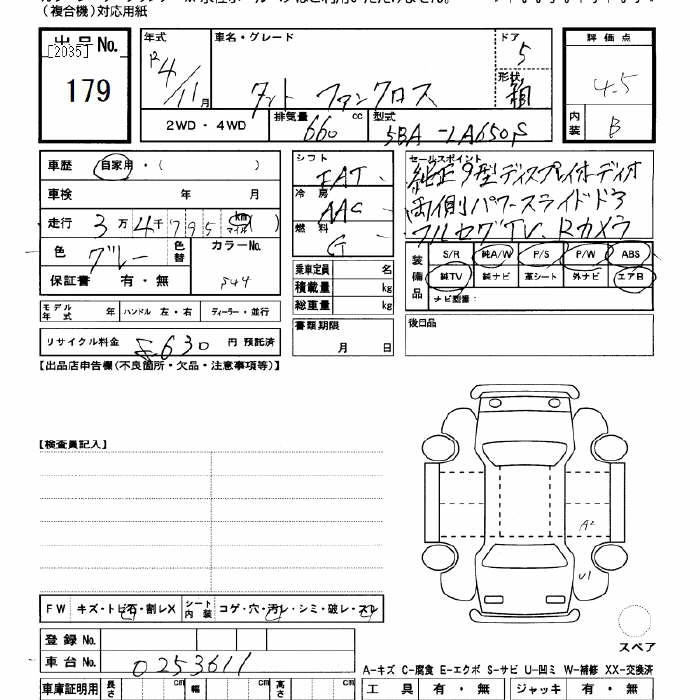 (複合機)対応用紙
出品No.
[2035]
179
年式
R4/11月
車名・グレード
タント ファンクロス
ドア
5
形状
箱
評価点
4.5
内装
B
2WD・4WD
排気量
660 cc
型式
5BA-LA650S
車歴 自家用・( )
車検 年 月
走行 3万4千795 km マイル
色 グレー
色替
カラーNo.
S44
保証書 有・無
シフト
FAT
冷房
AAC
燃料
G
乗車定員 名
積載量 kg
総重量 kg
セールスポイント
純正9型ディスプレイオーディオ
両側パワースライドドア
フルセグTV Rカメラ
装備品
S/R 純A/W P/S P/W ABS
純TV 純ナビ 革シート 外ナビ エアB
ナビ型番:
モデル年式 年 ハンドル 左・右 ディーラー・並行
書類期限
月 日
後日品
リサイクル料金 5630 円 預託済
【出品店申告欄(不良箇所・欠品・注意事項等)】
【検査員記入】
A2
U1
スペア
FW キズ・トビ石・割レX
シート内装 コゲ・穴・汚レ・シミ・破レ・スレ
登録No.
車台No. 0253611
A-キズ C-腐食 E-エクボ S-サビ U-凹ミ W-補修 XX-交換済
車庫証明用 長さ cm 幅 cm 高さ cm
工具 有・無 ジャッキ 有・無